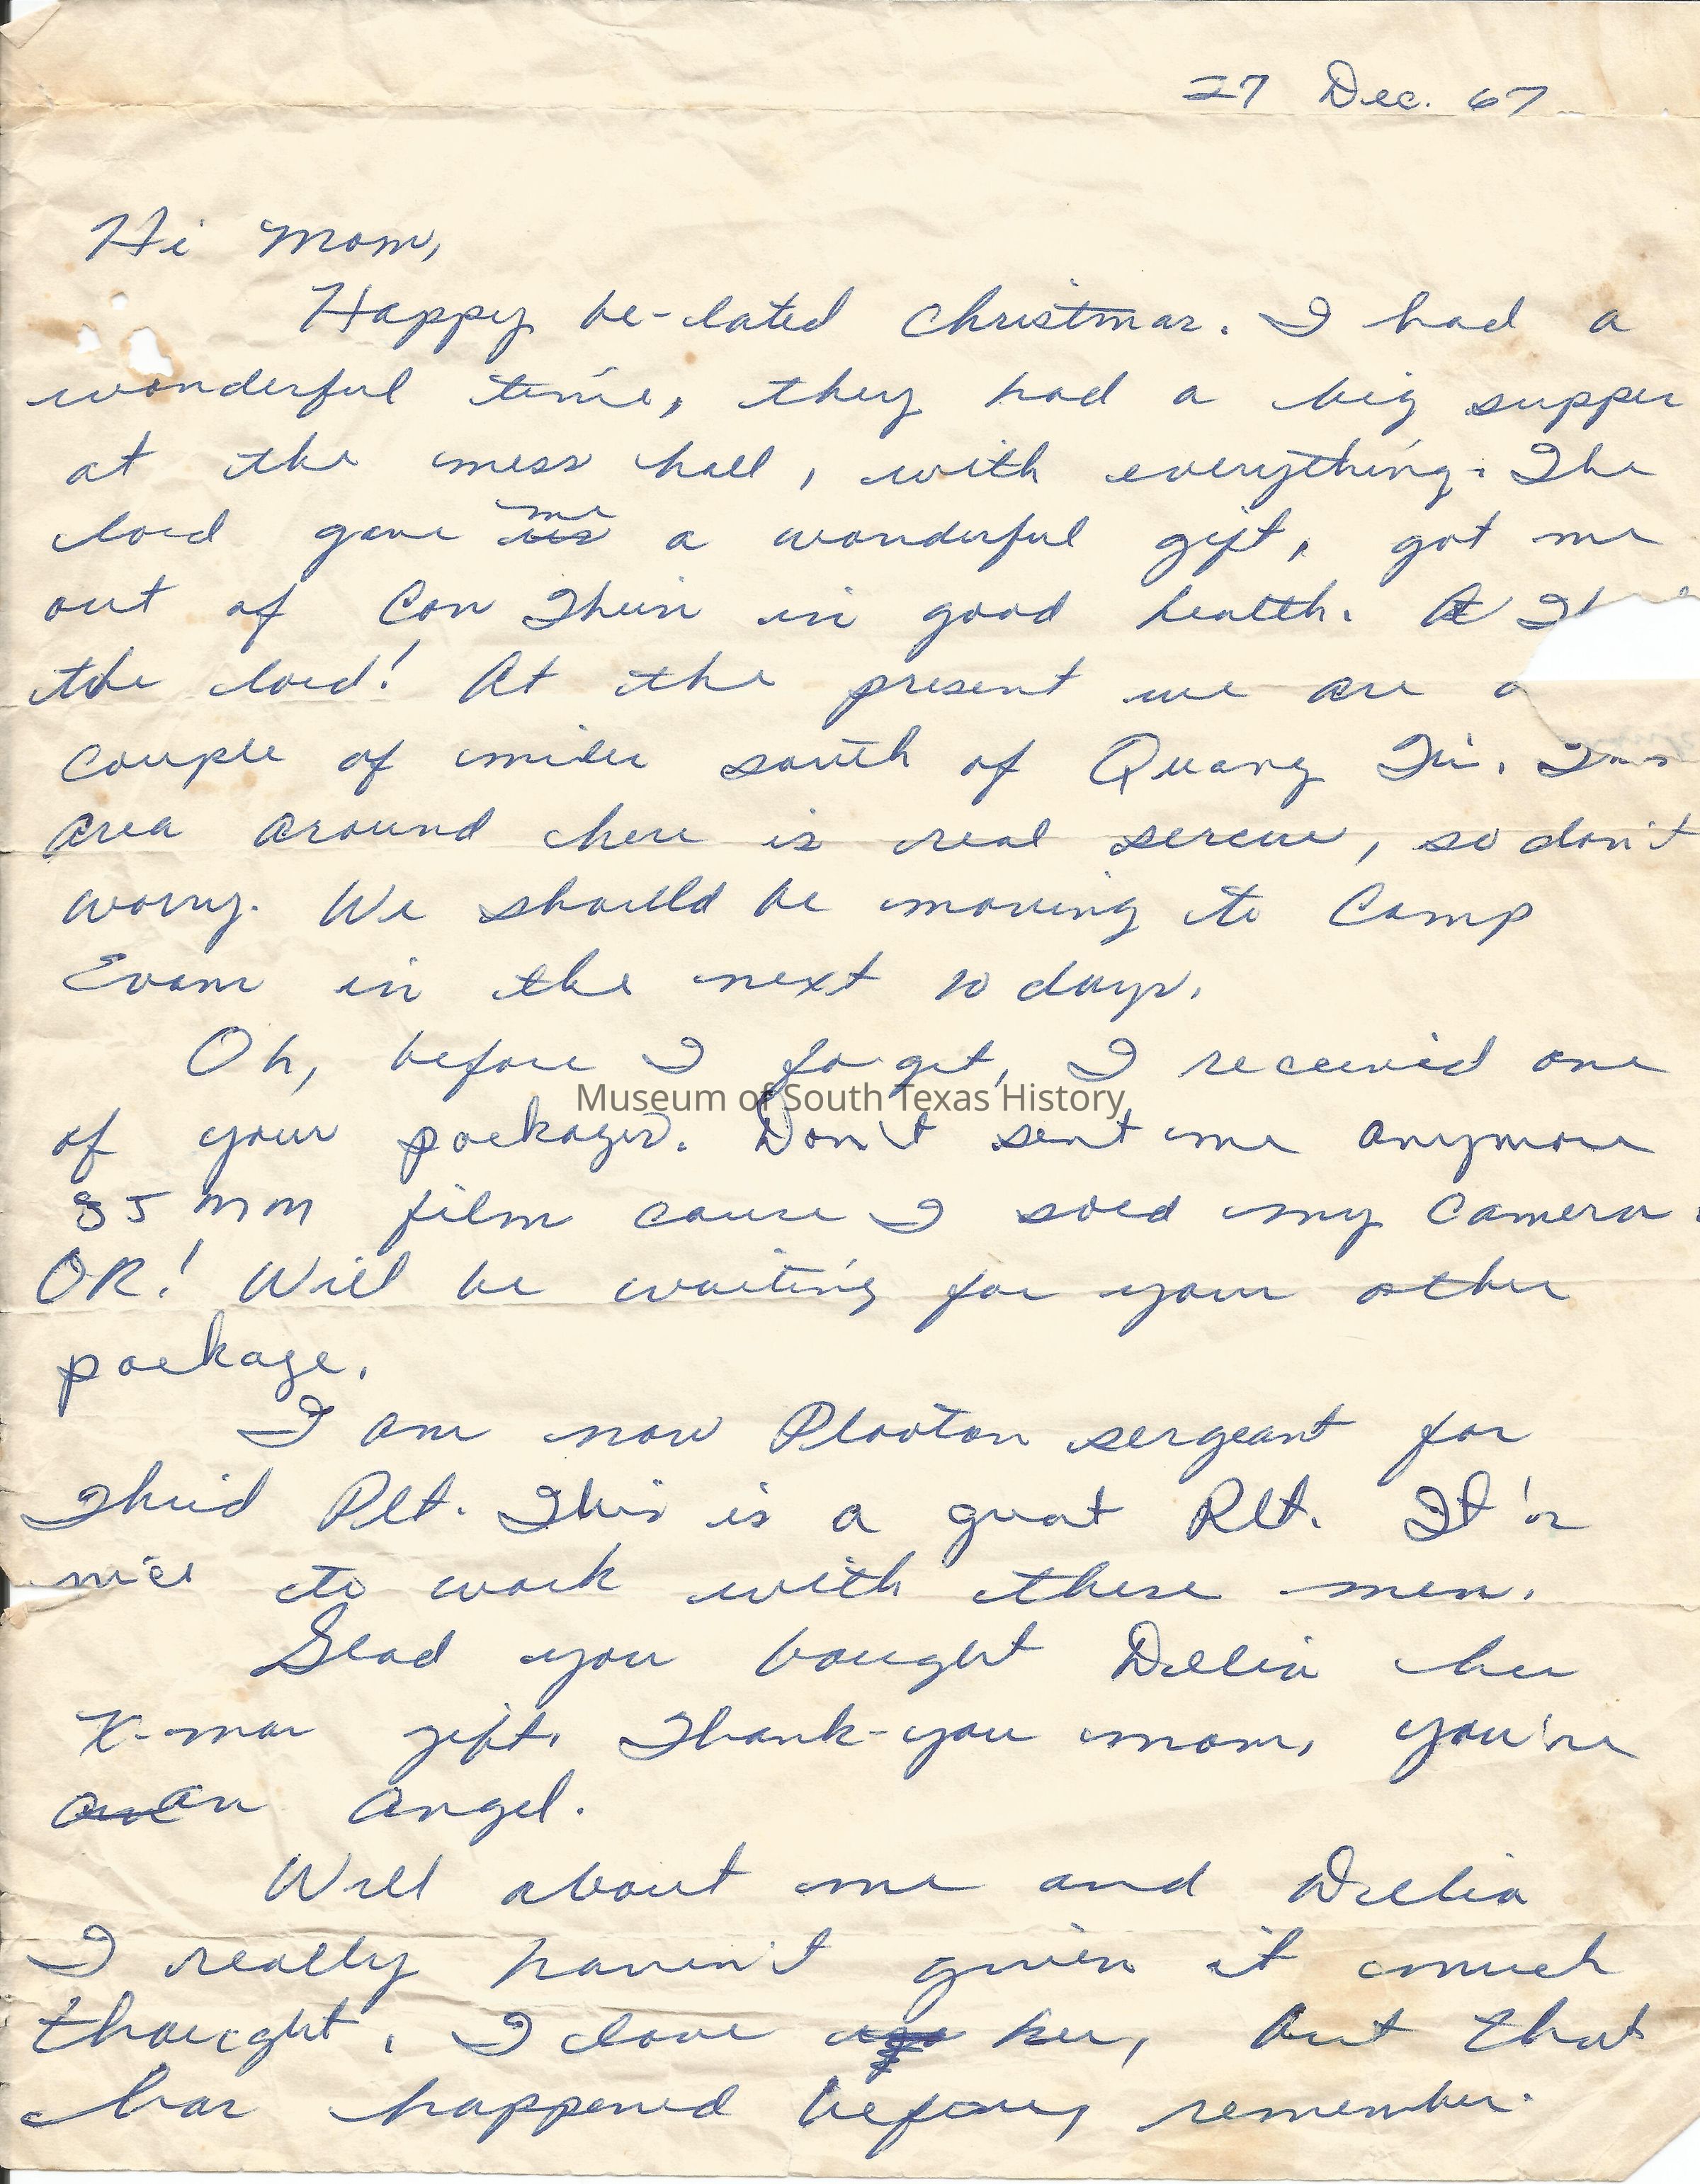 27 Dec. 67
Hi Mom,
Happy be-lated Christmas. I had a
wonderful time, they had a big supper
at the mess hall, with everything. The
lord gave us me a wonderful gift, got me
out of Con Thein in good health. At
the lord! At the present we are a
couple of miles south of Quang Tri.
area around here is real secure, so don't
worry. We should be moving to Camp
Evans in the next 10 days.
Oh, before I forget, I received one
Museum of South Texas History
of your packages. Don't sent me anymore
35 mm film cause I sold my camera.
OK! Will be waiting for your other
package.
I am now Platoon sergeant for
Third Plt. This is a great Plt. It's
nice to work with these men.
Glad you bought Dellia her
X-mas gift. Thank-you mom, you're
an an angel.
Well about me and Dellia
I really haven't given it much
thought. I love her, but that
has happened before, remember.